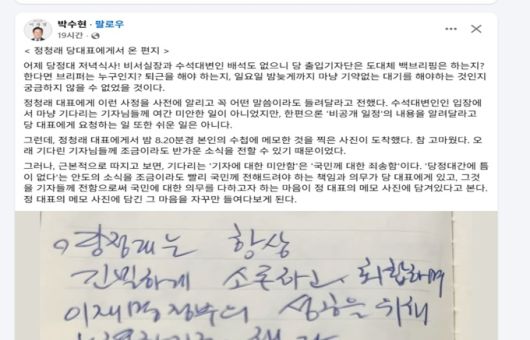 박수현 · 팔로우
19시간 ·
< 정청래 당대표에게서 온 편지 >
어제 당정대 저녁식사! 비서실장과 수석대변인 배석도 없으니 당 출입기자단은 도대체 백브리핑은 하는지?
한다면 브리퍼는 누구인지? 퇴근을 해야 하는지, 일요일 밤늦게까지 마냥 기약없는 대기를 해야하는 것인지
궁금하지 않을 수 없었을 것이다.
정청래 대표에게 이런 사정을 사전에 알리고 꼭 어떤 말씀이라도 들려달라고 전했다. 수석대변인인 입장에
서 마냥 기다리는 기자님들께 여간 미안한 일이 아니었지만, 한편으론 '비공개 일정'의 내용을 알려달라고
당 대표에게 요청하는 일 또한 쉬운 일은 아니다.
그런데, 정청래 대표에게서 밤 8.20분경 본인의 수첩에 메모한 것을 찍은 사진이 도착했다. 참 고마웠다. 오
래 기다린 기자님들께 조금이라도 반가운 소식을 전할 수 있기 때문이었다.
그러나, 근본적으로 따지고 보면, 기다리는 '기자에 대한 미안함'은 '국민께 대한 죄송함'이다. '당정대간에 틈
이 없다'는 안도의 소식을 조금이라도 빨리 국민께 전해드려야 하는 책임과 의무가 당 대표에게 있고, 그것
을 기자들께 전함으로써 국민에 대한 의무를 다하고자 하는 마음이 정 대표의 메모 사진에 담겨있다고 본다.
정 대표의 메모 사진에 담긴 그 마음을 자꾸만 들여다보게 된다.
당정대는 항상
긴밀하게 소통하고, 화합하며
이재명 정부의 성공을 위해